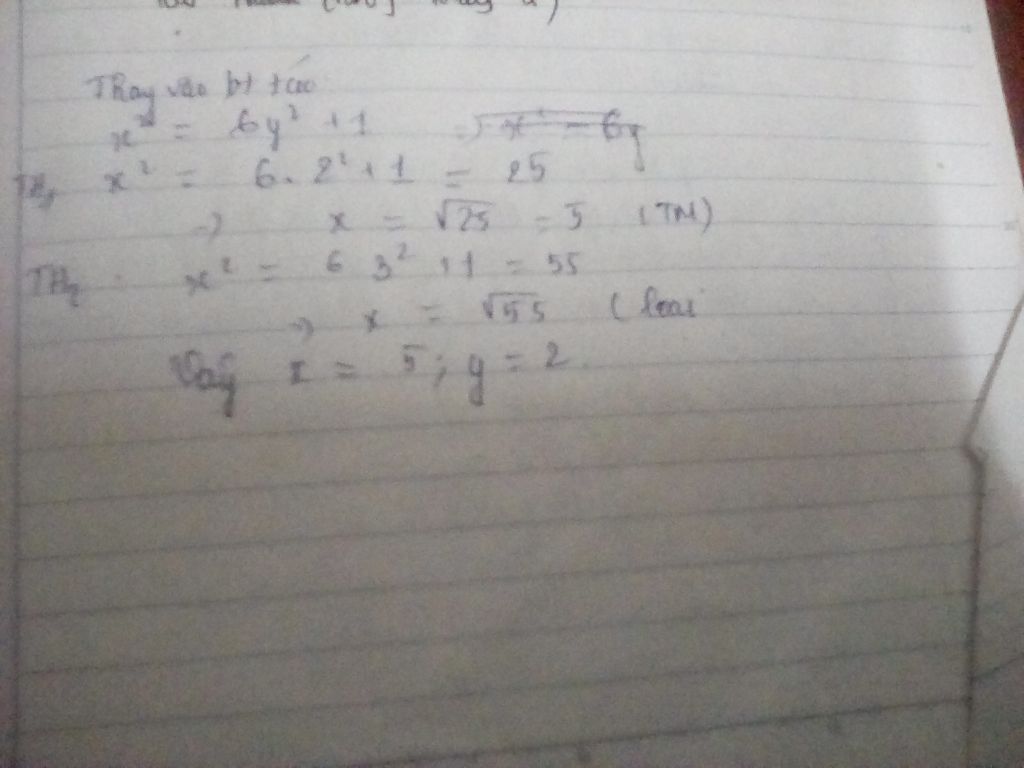 Thay vào bt trên
x² = 6y² + 1
TH₁ x² = 6. 2² + 1 = 25
=> x = √25 = 5 (TM)
TH₂ x² = 6 3² + 1 = 55
=> x = √55 ( loai
Vậy x = 5 ; y = 2.